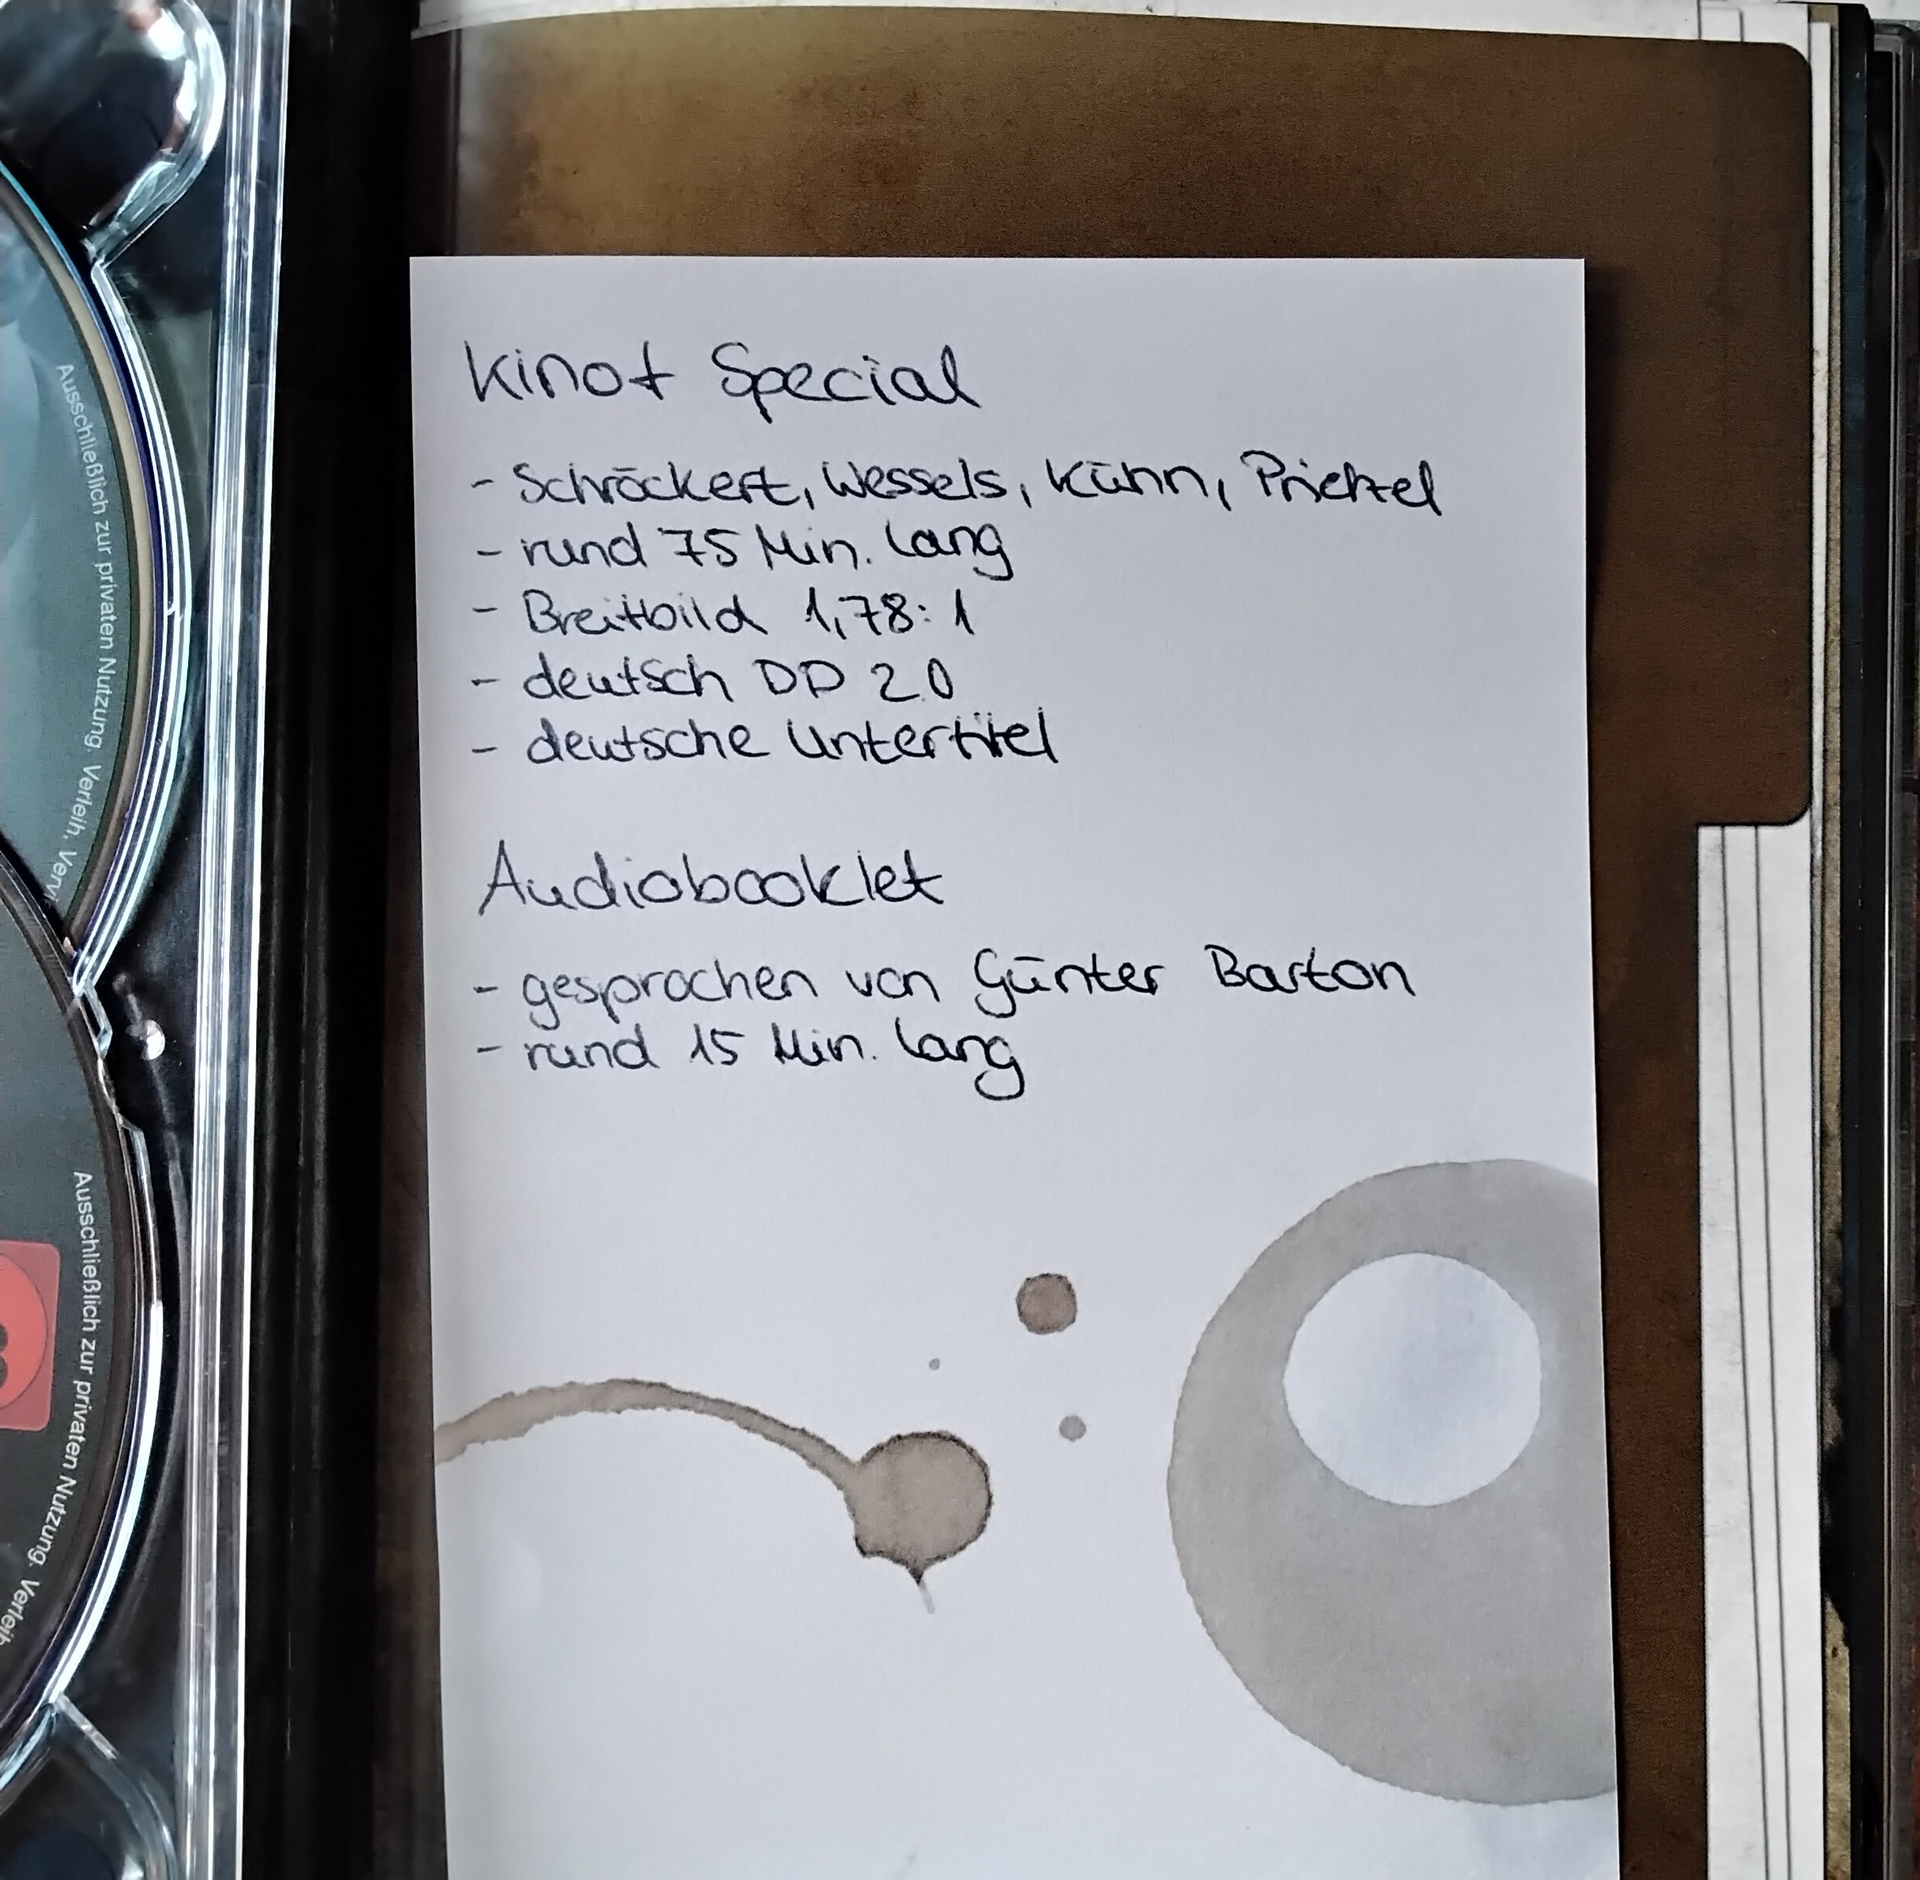 Kinot Special
- Schröckert, Wessels, Kühn, Prietzel
- rund 75 Min. lang
- Breitbild 1,78:1
- deutsch DD 2.0
- deutsche Untertitel
Audiobooklet
- gesprochen von Günter Barton
- rund 15 Min. lang
Ausschließlich zur privaten Nutzung. Verleih,
Ausschließlich zur privaten Nutzung.